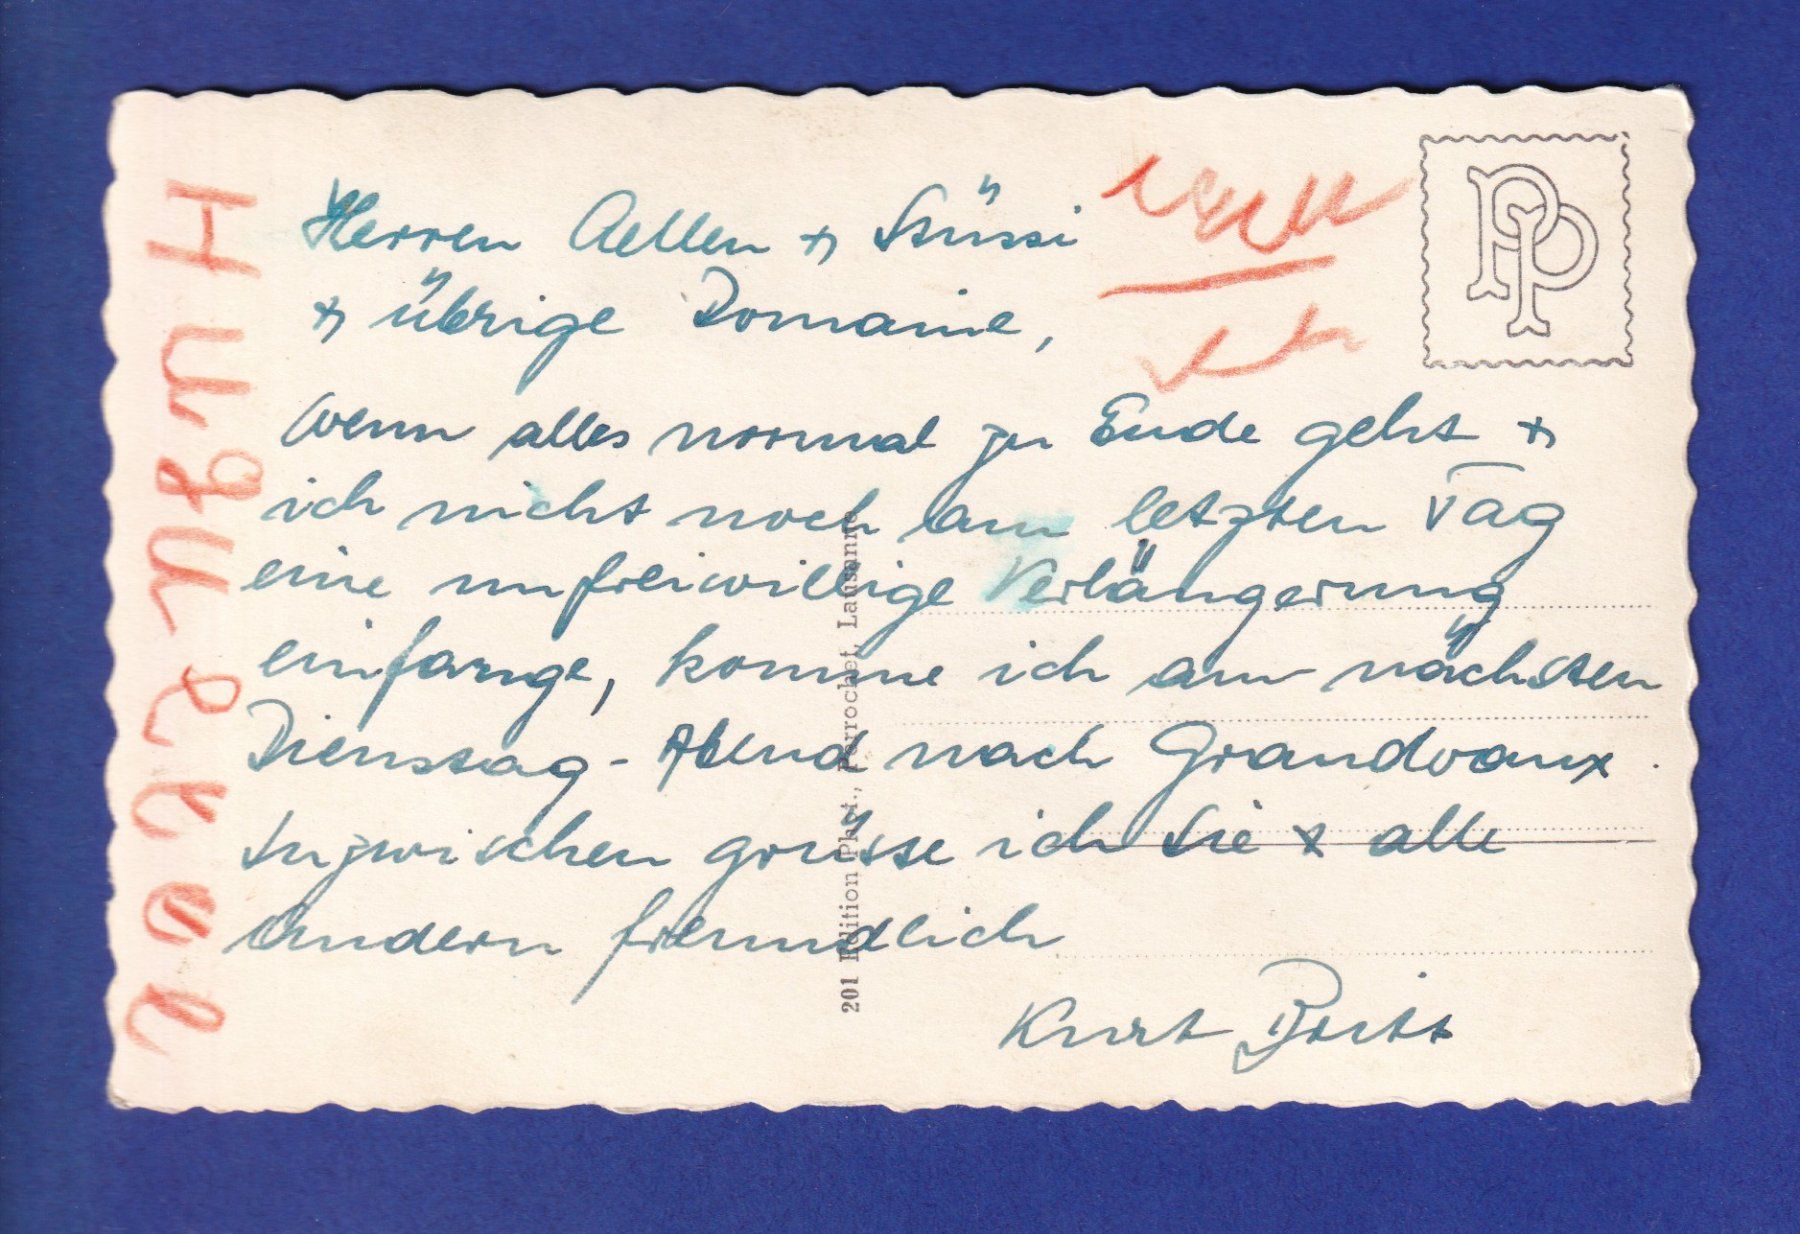 Herren Aellen + Stüssi
+ übrige Domaine,
Wenn alles normal zu Ende geht +
ich nicht noch am letzten Tag
eine unfreiwillige Verlängerung
einfange, komme ich am nächsten
Dienstag-Abend nach Grandvaux.
Inzwischen grüsse ich Sie + alle
Andern freundlich
Kurt
201 Edition Phot., Perrochet, Lausanne
PP